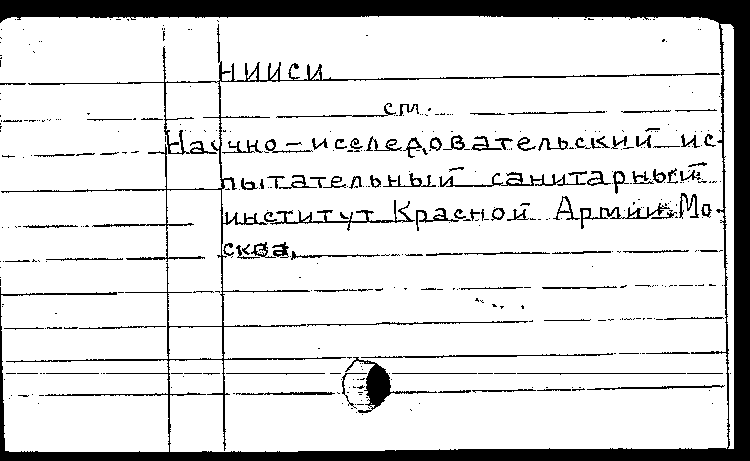 НИИСИ
см.
Научно-исследовательский ис-
пытательный санитарный
институт Красной Армии. Мо-
сква.